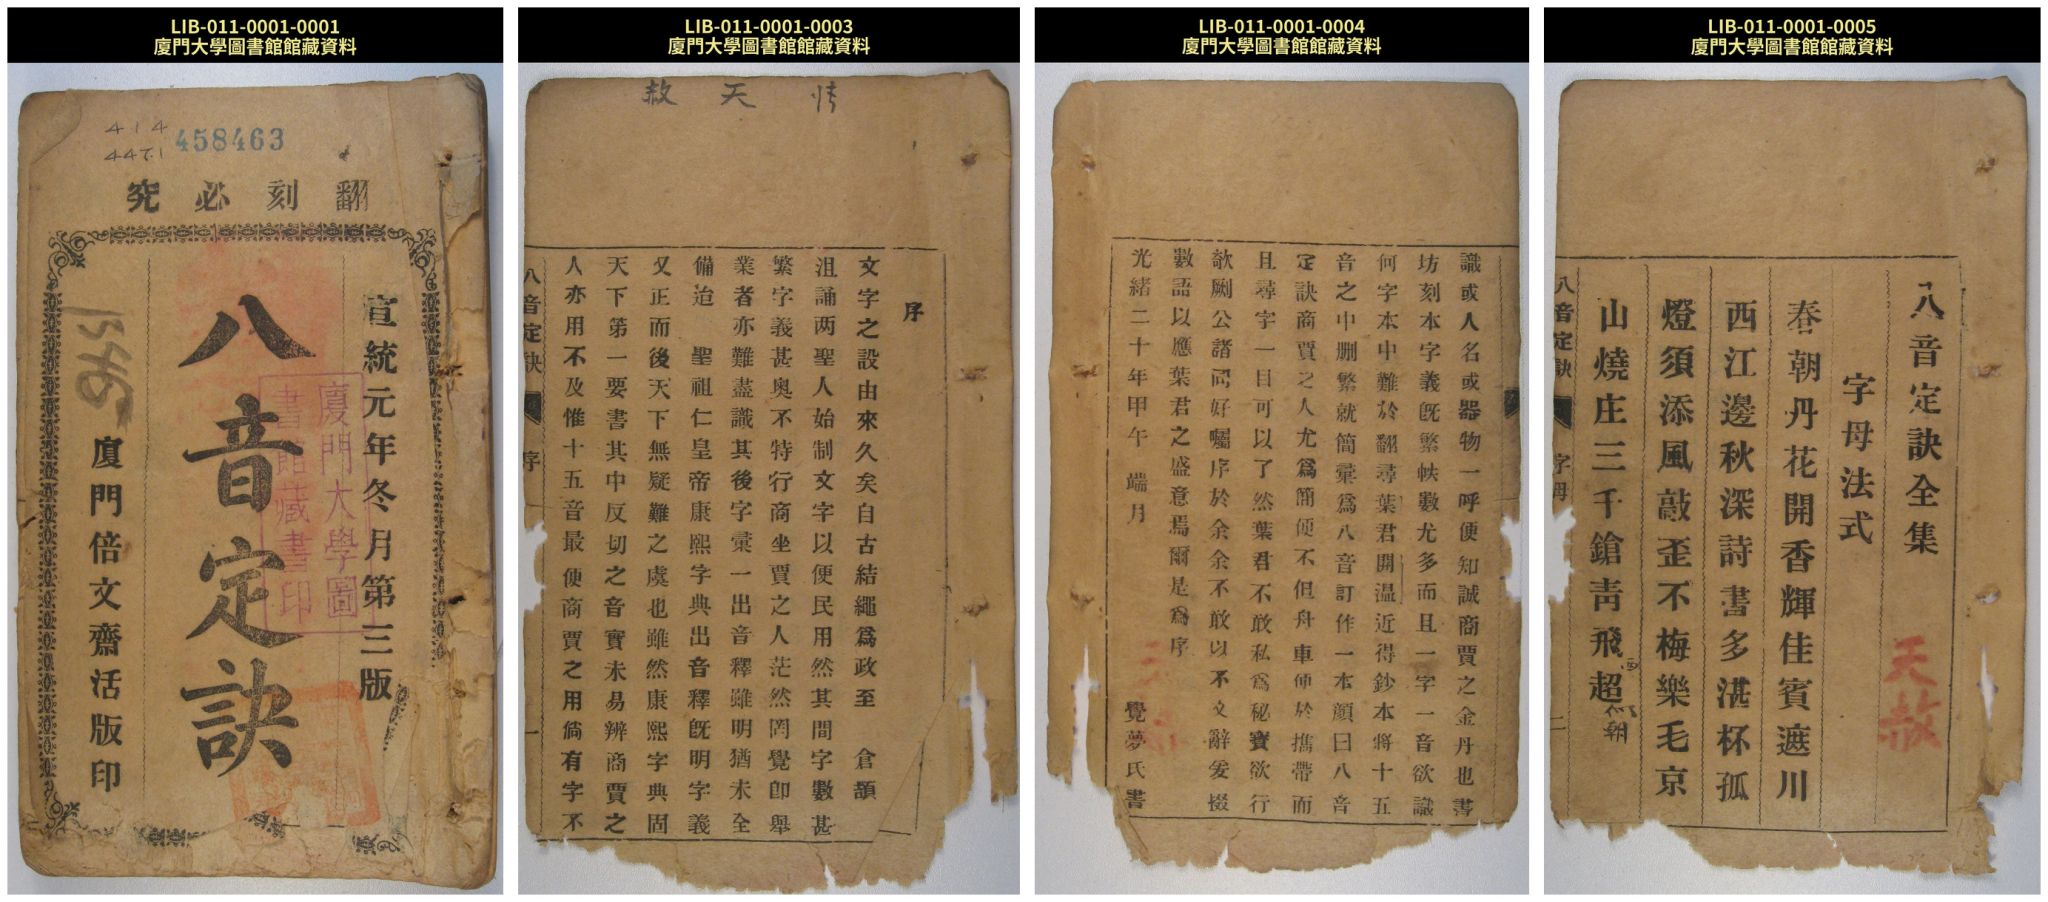 LIB-011-0001-0001
廈門大學圖書館館藏資料
414
447.1
458463
翻刻必究
宣統元年冬月第三版
八音定訣
廈門倍文齋活版印
廈門大學圖
書館藏書印
LIB-011-0001-0003
廈門大學圖書館館藏資料
天赦
序
文字之設由來久矣自古結繩爲政至 倉頡
沮誦两聖人始制文字以便民用然其間字數甚
繁字義甚奧不特行商坐賈之人茫然罔覺卽舉
業者亦難盡識其後字彙一出音釋雖明猶未全
備迨 聖祖仁皇帝康熙字典出音釋旣明字義
又正而後天下無疑難之虞也雖然康熙字典固
天下第一要書其中反切之音實未易辨商賈之
人亦用不及惟十五音最便商賈之用倘有字不
八音定訣 序 一
LIB-011-0001-0004
廈門大學圖書館館藏資料
識或人名或器物一呼便知誠商賈之金丹也書
坊刻本字義旣繁帙數尤多而且一字一音欲識
何字本中難於翻尋葉君開温近得鈔本將十五
音之中刪繁就簡彙爲八音訂作一本顏曰八音
定訣商賈之人尤爲簡便不但舟車便於攜帶而
且尋字一目可以了然葉君不敢私爲秘寶欲行
欹劂公諸同好囑序於余余不敢以不文辭爰掇
數語以應葉君之盛意焉爾是爲序
光緒二十年甲午 端月 覺夢氏書
LIB-011-0001-0005
廈門大學圖書館館藏資料
八音定訣全集
天赦
字母法式
春朝丹花開香輝佳賓遮川
西江邊秋深詩書多湛杯孤
燈須添風敲歪不梅樂毛京
山燒庄三千鎗靑飛超
八音定訣 字母 二